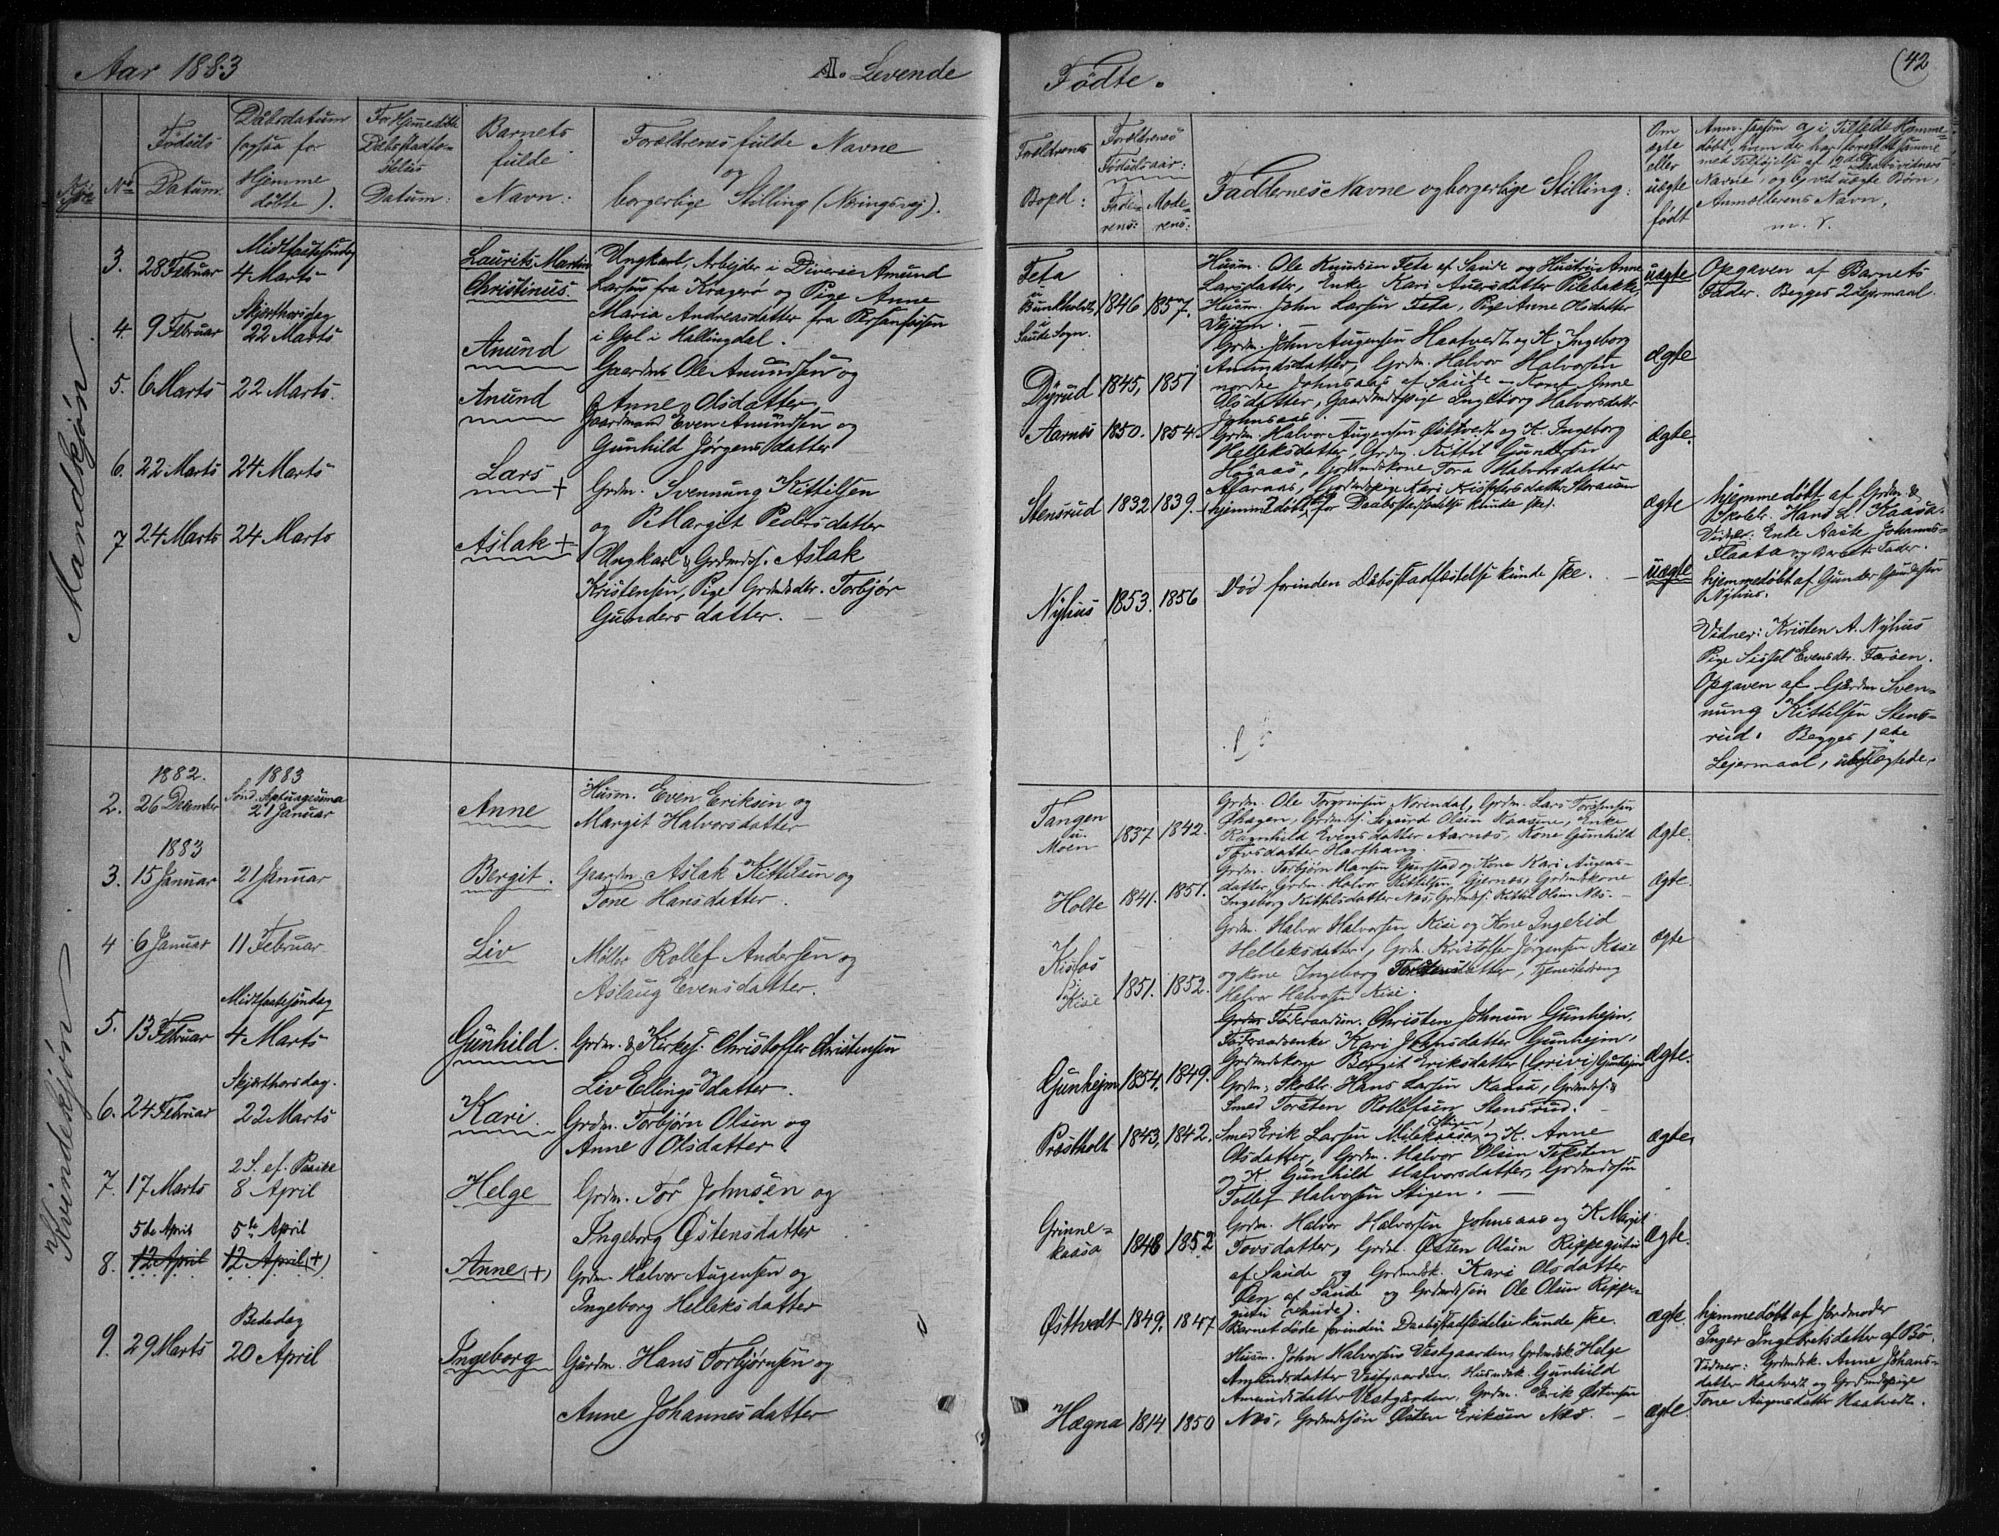 Aar 1883
A. I. Levende
Fødte.
(42
Kjøn
No
Fødsels
Datum.
Daabsdatum
(ogsaa for
Hjemme
døbte).
For Hjemmedøbte
Daabsstadfæ-
stelses
Datum:
Barnets
fulde
Navn:
Forældrenes fulde Navne
og
borgerlige Stilling (Næringsvej).
Forældrenes
Bopæl:
Forældrenes
Fødselsaar:
Fade-
rens:
Mode-
rens:
Faddernes Navne og borgerlige Stilling:
Om
ægte
eller
uægte
født
Anm. saasom og i Tilfælde Hjemme-
døbt, hvem der har forrettet samme
med Tilføjelse af 2 de Daabsvidners
Navne, og ved uægte Børn,
Anmelderens Navn,
m. v.
Mandkjøn
3.
28 Februar
Midtfastesøndag
4 Marts
Laurits Martin
Christinus.
Ungkarl, Arbejder i Diverse Amund
Larsen fra Kragerø og Pige Anne
Maria Andreasdatter fra
i Gol i Hallingdal.
Feta
u
Bunkholdt
i
Saude Sogn.
1846
1857.
Husm. Ole Knudsen Feta af Saude og Hustru Anne
Larsdatter, Enke Kari Auersdatter Pilebakke
Husm. John Larsen Feta, Pige Anne Olsdatter
uægte
Opgaven af Barnets
Fader. Begges 2 Lejermaal.
4.
9 Februar
Skjærthorsdag
22 Marts
Anund
Gaardm. Ole Amundsen og
Anne Olsdatter
Dyrud
1845,
1851
Grdm. John Augensen Haatvedt og K. Ingeborg
Amundsdatter, Grdm. Halvor Halvorsen
nordre Johnsaas af Saude – Kone Anne
Olsdatter, Gaardmdspige Ingeborg Halvorsdatter
Johnsaas.
ægte
5.
6 Marts
22 Marts.
Anund
Gaardmand Even Amundsen og
Gunhild Jørgensdatter
Aarnes
1850.
1854.
Grdm. Halvor Augensen Østtvedt og K. Ingeborg
Helleksdatter, Grdm. Kittil Gundersen
Høgaas, Gardmdskone Tora Halvorsdatter
Afarnas, Gardmdspige Kari Kristofersdatter
ægte.
6.
22 Marts
24 Marts
Lars
+
Grdm. Svennung Kittilsen
og Margit Pedersdatter
Stensrud
1832
1839.
(hjemmedøbt, for Daabsstadfæstelse kunde ske).
ægte
hjemmedøbt af Grdm. &
Skolelr. Hans L. Kaasa.
Vidner: Enke Aaste Johannes-
Flaata og Barnets Fader.
7
24 Marts
24 Marts
Aslak +
Ungkarl & Grdmds. Aslak
Kristensen, Pige Grdmdsdtr. Torbjør
Gundersdatter. –
Nyhus
1853.
1856
Død forinden Daabsstadfæstelse kunde ske. –
uægte
hjemmedøbt af Gunder Gundersen
Nyhus.
Vidner: Kristen A. Nyhus
Pige Sissel Evensdtr. Færøen.
Opgaven af Gardm Sven-
nung Kittilsen Stens-
rud. Begges 1 ste
Lejermaal, ubeslægtede.
Kvindekjøn
2.
1882.
26 December
1883
Sønd. Septuagesima
21 Januar
Anne
Husm. Even Eriksen og
Margit Halvorsdatter
Tangen
u
Moen
1837
1842.
Grdm. Ole Torgrimsen Norendal, Grdm. Lars Torstensen
Øhagen, Grdmds. Sigurd Olsen Kaasene, Enke
Ragnhild Evensdatter Aarnes, Kone Gunhild
Tovsdatter
ægte.
3.
1883
15 Januar
21 Januar
Bergit.
Gaardm. Aslak Kittilsen og
Tone Hansdatter.
Holte
1841.
1851.
Grdm. Torbjørn Hansen Gjerstad og Kone Kari Augens-
datter, Grdm. Halvor Kittilsen Gjernes, Grdmdskone
Ingeborg Kittilsdatter Næs, Grdmds. Kittil Olsen Næs. –
Ægte.
4
6 Januar
11 Februar
Liv
Møller Rollef Andersen og
Aslaug Evensdatter.
Kisfos
i
Kise
1851.
1852.
Grdm. Halvor Halvorsen Kise og Kone Ingerid
Helleksdatter, Grdm. Kristoffer Jørgensen Kise
og Kone Ingeborg Torstensdatter, Tjenestedreng
Halvor Halvorsen Kise.
Ægte
5.
13 Februar
Midtfastesøndag
4 Marts
Gunhild.
Grdm. & Kirkes. Christoffer Christensen
Liv Ellingsdatter.
Gunhejm
1854.
1849.
Føderaadsm. Christen Johnsen Gunhejm,
Føderaadsenke Kari Johnsdatter Gunhejm,
Grdmdskone Bergit Eriksdatter (Grivi) Gunhejm
Grdm. Skolelr. Hans Larsen Kaasa, Grdmds. &
Smed Torsten Rollefsen Stensrud. –
Ægte.
6.
24 Februar
Skjærthorsdag.
22 Marts
Kari
Grdm. Torbjørn Olsen og
Anne Olsdatter
Præstholt
1843,
1842.
Smed Erik Larsen Milekaasa (Stigen), og K. Anne
Olsdatter, Grdm. Halvor Olsen Teksten
og K. Gunhild Halvorsdatter, Grdmdssøn
Tollef Halvorsen Stigen. –
ægte,
7.
17 Marts
2 S. ef. Paaske
8 April
Helge
Grdm. Tor Johnsen og
Ingeborg Østensdatter
Grinne-
kaasa
1848
1852
Grdm. Halvor Halvorsen Johnsaas og K. Margit
Tovsdatter, Grdm. Østen Olsen Rippegutu
af Saude og Grdmdsk. Kari Olsdatter
Øen af Saude og Grdmdssøn Ole Olsen Rippe-
gutu (Saude).
Ægte.
8.
5 de April
12 April
5 te April
12 April (+)
Anne (+)
Grdm. Halvor Augensen og
Ingeborg Helleksdatter
Østtvedt
1849.
1847
Barnet døde forinden Daabsstadfæstelse kunde ske.
ægte.
hjemmedøbt af Jordmoder
Inger Ingebretsdatter af Bø.
Vidner: Grdmdsk. Anne Johans-
datter Haatvedt og Grdmdspige
Tone Augensdatter Haatvedt.
9.
29 Marts
Bededag
20 April
Ingeborg
Gårdm. Hans Torbjørnsen og
Anne Johannesdatter
Hægna
1814.
1850
Husm. John Halvorsen Vestgaarden, Grdmdsk. Helge
Amundsdatter Vestgaarden, Husmdsk. Gunhild
Amundsdatter Vestgården, Grdm. Erik Østensen
Næs, Grdmdssøn Østen Eriksen Næs. –
Ægte.